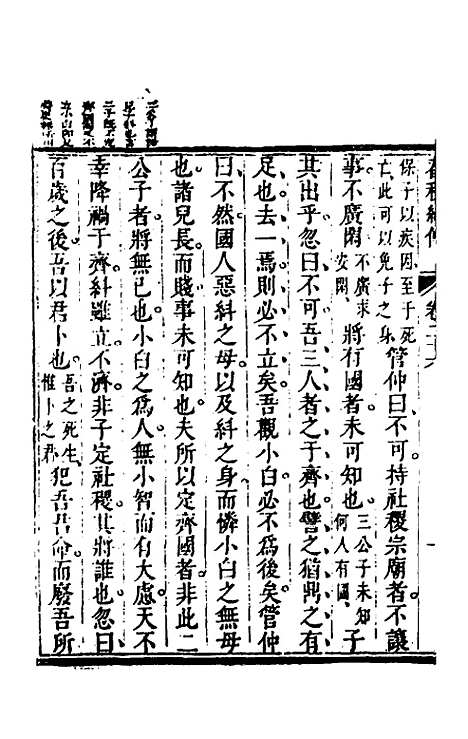 保子以疾因至于死
亡此可以免子之身
管仲曰不可持社稷宗廟者不讓
事不廣閑
不廣求
安閑
將有國者未可知也
三公子未知
何人有國
子
其出乎忽曰不可吾三人者之于齊也譬之猶鼎之有
足也去一焉則必不立矣吾觀小白必不爲後矣管仲
曰不然國人惡糾之母以及糾之身而憐小白之無母
也諸兒長而賤事未可知也夫所以定齊國者非此二
公子者將無已也小白之爲人無小智而有大慮天不
幸降禍于齊糾雖立不濟非子定社稷其將誰也忽曰
百歲之後吾以君卜也
吾之死生
惟卜之君
犯吾君命而廢吾所